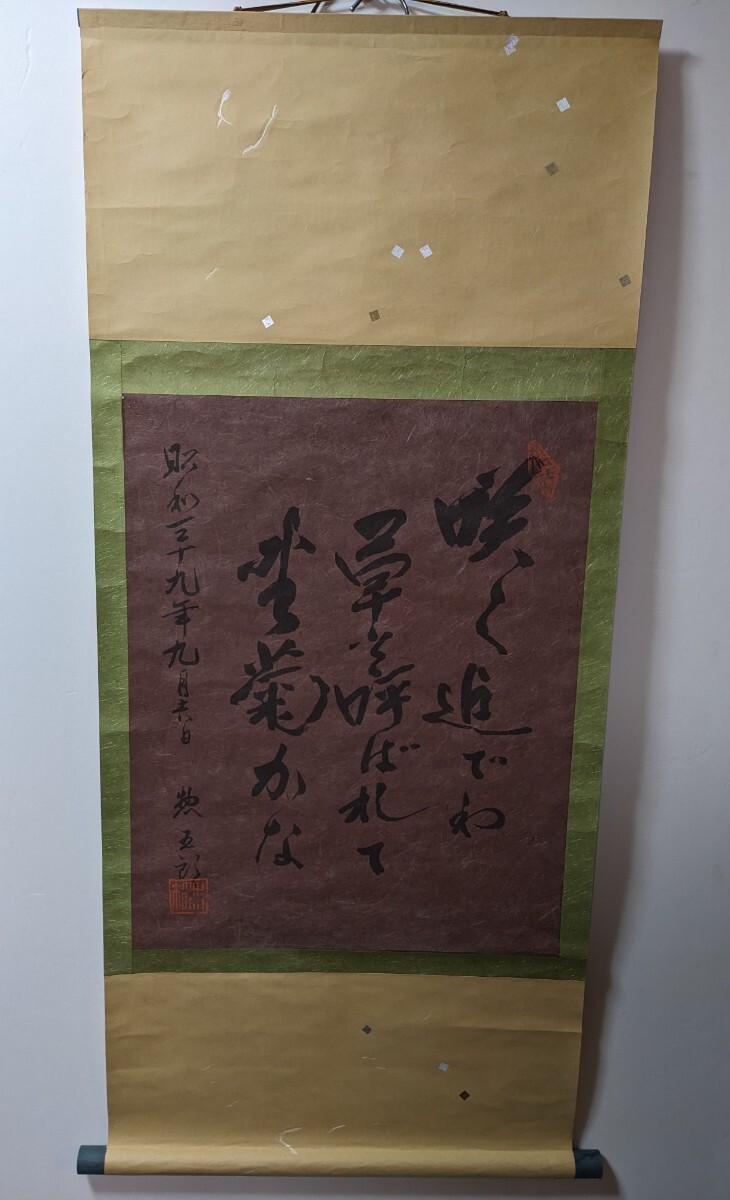 咲く迄でわ
草と呼ばれて
埜菊かな
昭和三十九年九月六日
惣五郎